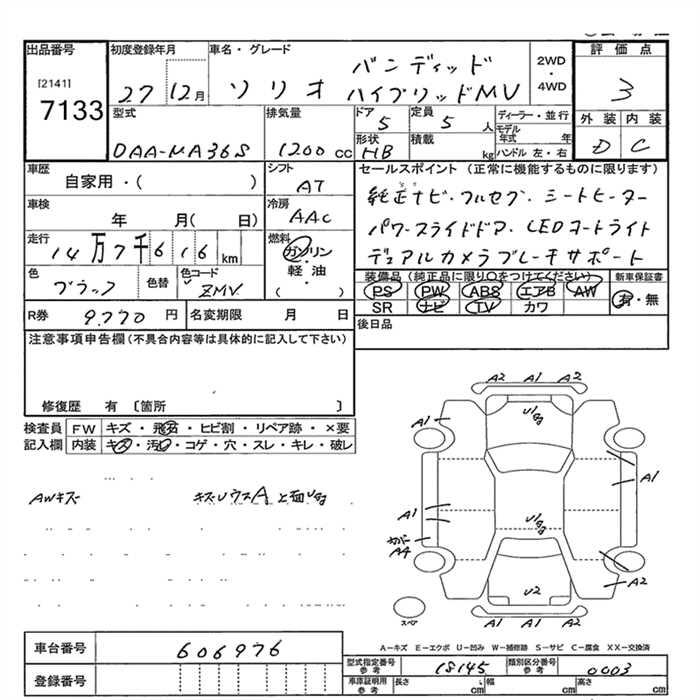 出品番号 初度登録年月 車名・グレード 評価点
[2141]
7133
27 12月
ソリオ バンディッド
ハイブリッドMV
2WD
・
4WD
3
型式 排気量 ドア 定員 ディーラー・並行
DAA-MA36S 1200 cc 5 5 人
モデル年式 年
外装 内装
形状 積載 ハンドル 左・右
HB kg
D C
車歴 シフト セールスポイント (正常に機能するものに限ります)
自家用・( ) AT
純正ナビ・フルセグ・シートヒーター
車検 冷房
年 月( 日) AAC
パワースライドドア・LEDオートライト
走行 燃料
14万7千616km ガソリン・
軽・油
( )
デュアルカメラブレーキサポート
色 色替 色コード
ブラック ZMV
装備品(純正品に限り○をつけてください) 新車保証書
PS PW ABS エアB AW 有・無
SR ナビ TV カワ
R券 9.770円 名変期限 月 日
後日品
注意事項申告欄(不具合内容等は具体的に記入して下さい)
修復歴 有〔箇所 〕
検査員 FW キズ・飛石・ヒビ割・リペア跡・×要
記入欄 内装 キズ・汚レ・コゲ・穴・スレ・キレ・破レ
AWキズ
A2 A1 A2
A1
A1
A1
カバー
A4
A2
U2
スペア
A2 A1 A1
A―キズ E―エクボ U―凹み W―補修跡 S―サビ C―腐食 XX―交換済
車台番号 606976
登録番号
型式指定番号
参考
18145
類別区分番号
参考
0003
車庫証明用
参考
長さ cm 幅 cm 高さ cm